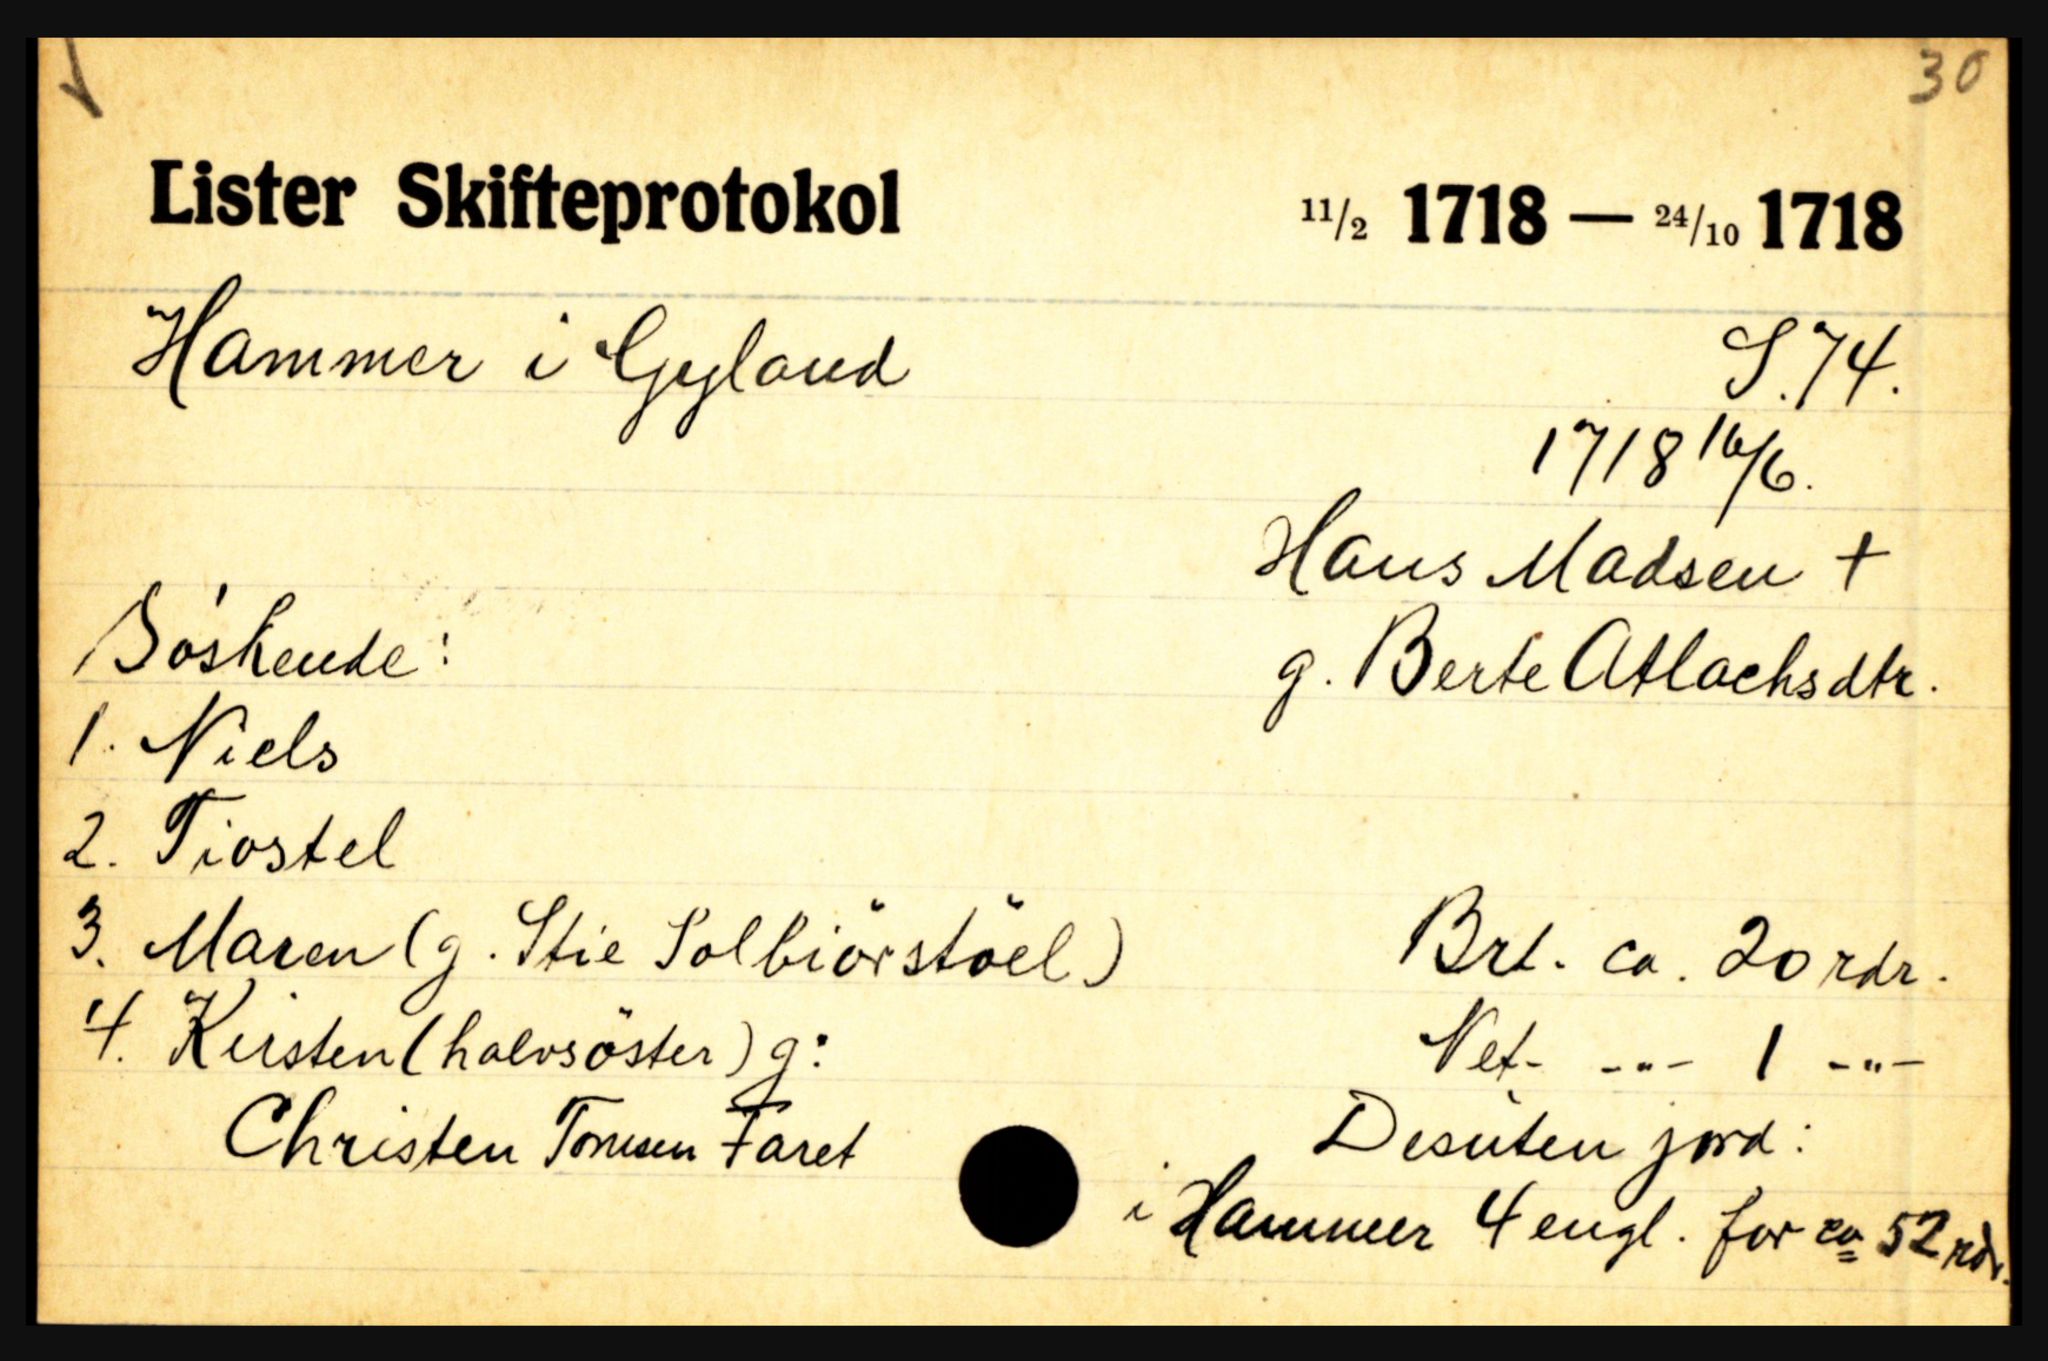 30
Lister Skifteprotokol 11/2 1718 — 24/10 1718
Hammer i Gyland S. 74.
1718 16/6.
Hans Madsen +
g. Berte Atlachsdtr.
Söskende:
1. Niels
2. Tiostel
3. Maren (g. Stie Solbiörstöel)
4. Kirsten (halvsöster) g:
Christen Tomesen Faret
Brt. ca. 20 rdr.
Net- -"- 1 -"-
Desuten jord:
i Hammer 4 engl. for ca 52 rdr.